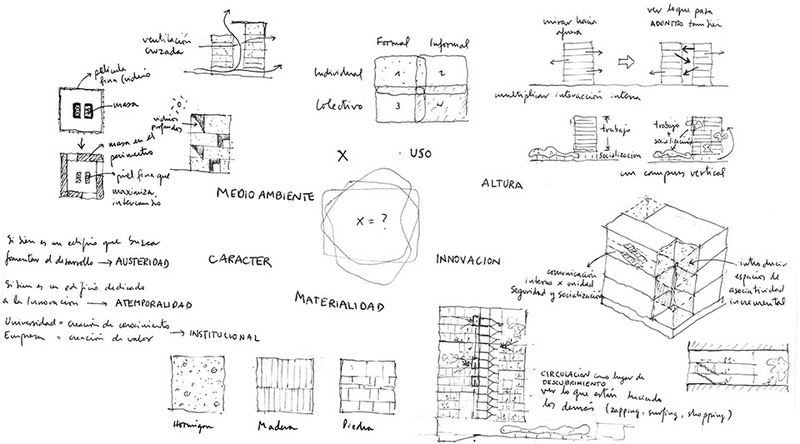 ventilación
cruzada
película
fina (vidrio
masa
masa en el
perímetro
piel fina que
maximiza
intercambio
vidrios
profundos
MEDIO AMBIENTE
Formal Informal
Individual 1 2
Colectivo 3 4
X · USO
mirar hacia
afuera
ver lo que pasa
ADENTRO también
multiplicar interacción interna
trabajo
socialización
trabajo
socialización
un campus vertical
ALTURA
X = ?
Si bien es un edificio que busca
fomentar el desarrollo → AUSTERIDAD
Si bien es un edificio dedicado
a la Innovación → ATEMPORALIDAD
Universidad = creación de conocimiento
Empresa = creación de valor → INSTITUCIONAL
CARACTER
MATERIALIDAD
Hormigon Madera Piedra
INNOVACION
comunicación
interna x unidad
Seguridad y socialización
introducir
espacios de
asociatividad
incremental
CIRCULACION como lugar de
DESCUBRIMIENTO
ver lo que están haciendo
los demás (zapping, surfing, shopping)